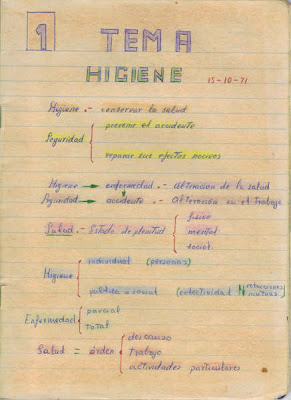 1 TEMA
HIGIENE 15-10-71
Higiene.- conservar la salud
Seguridad { prevenir el accidente
reparar sus efectos nocivos
Higiene → enfermedad.- Alteración de la salud
Seguridad → accidente.- Alteración en el trabajo
Salud.- Estado de plenitud { físico
mental
social.
Higiene { individual (personas)
publica o social (colectividad relaciones
mutuas)
Enfermedad { parcial
total
Salud = orden { descanso
trabajo
actividades particulares